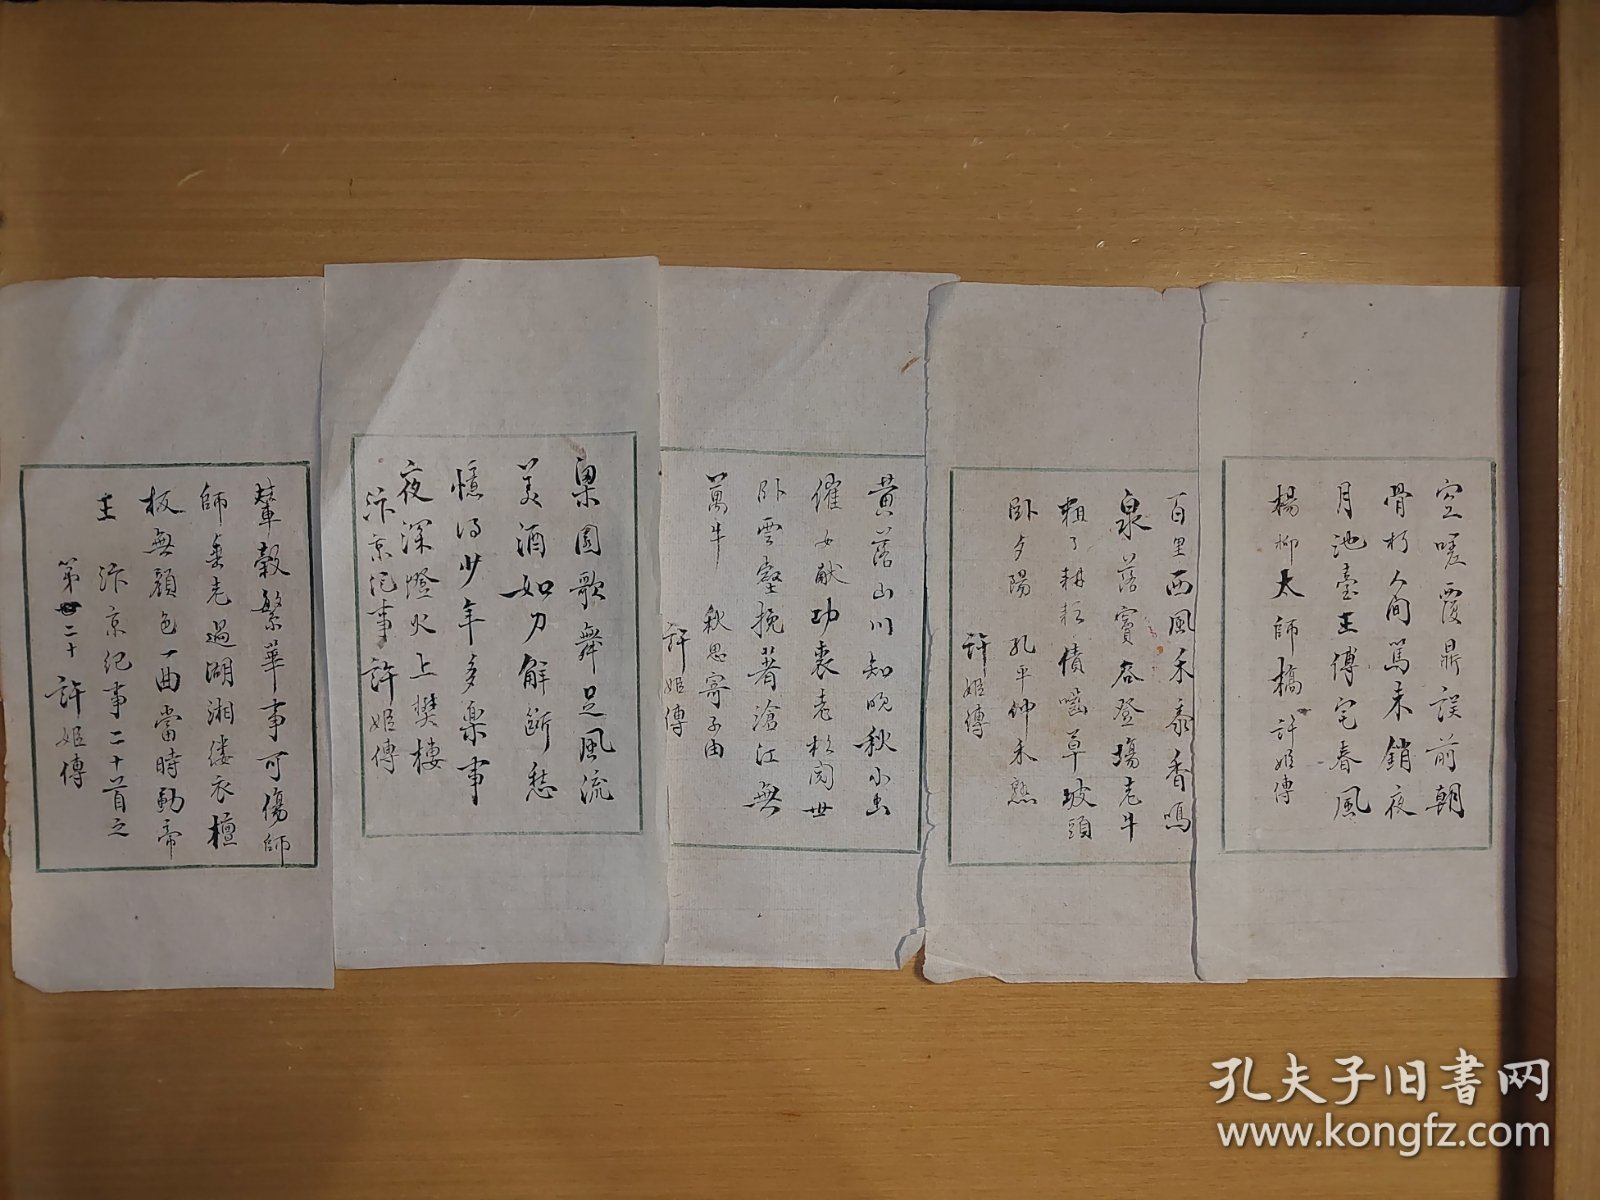 空嗟覆鼎誤前朝
骨朽人間罵未銷夜
月池臺王傅宅春風
楊柳太師橋 許姬傳
百里西風禾黍香鳴
泉落竇谷登場老牛
粗了耕耘債嚙草坡頭
卧夕陽 孔平仲禾熟
許姬傳
黃落山川知晚秋小虫
催女献功裘老松閱世
卧雲壑挽著滄江無
萬牛 秋思寄子由
許姬傳
梁園歌舞足風流
美酒如刀解斷愁
憶得少年多樂事
夜深燈火上樊樓
汴京記事 許姬傳
輦轂繁華事可傷師
師垂老過湖湘縷衣檀
板無顏色一曲當時動帝
王 汴京紀事二十首之
第二十 許姬傳
孔夫子旧书网
www.kongfz.com